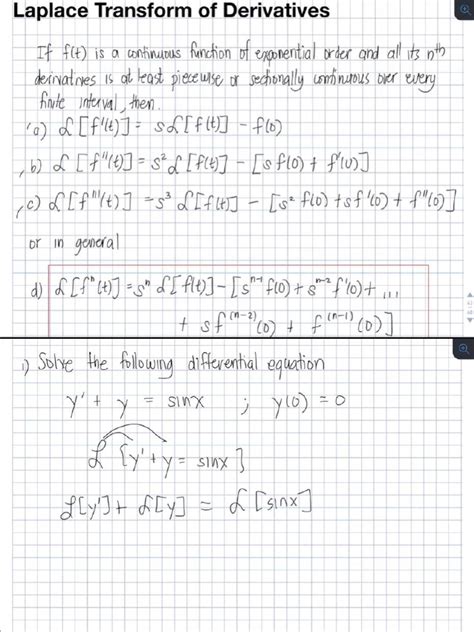 Laplace Transform of Derivatives
If f(t) is a continuous function of exponential order and all its nth
derivatives is at least piecewise or sectionally continuous over every
finite interval, then.
a) ℒ[f'(t)] = sℒ[f(t)] - f(0)
b) ℒ[f''(t)] = s²ℒ[f(t)] - [sf(0) + f'(0)]
c) ℒ[f'''(t)] = s³ ℒ[f(t)] - [s² f(0) + sf'(0) + f''(0)]
or in general
d) ℒ[fⁿ(t)] = sⁿ ℒ[f(t)] - [sⁿ⁻¹ f(0) + sⁿ⁻² f'(0) + ...
+ sf⁽ⁿ⁻²⁾(0) + f⁽ⁿ⁻¹⁾(0)]
1) Solve the following differential equation
y' + y = sinx ; y(0) = 0
ℒ [y' + y = sinx]
ℒ[y'] + ℒ[y] = ℒ[sinx]